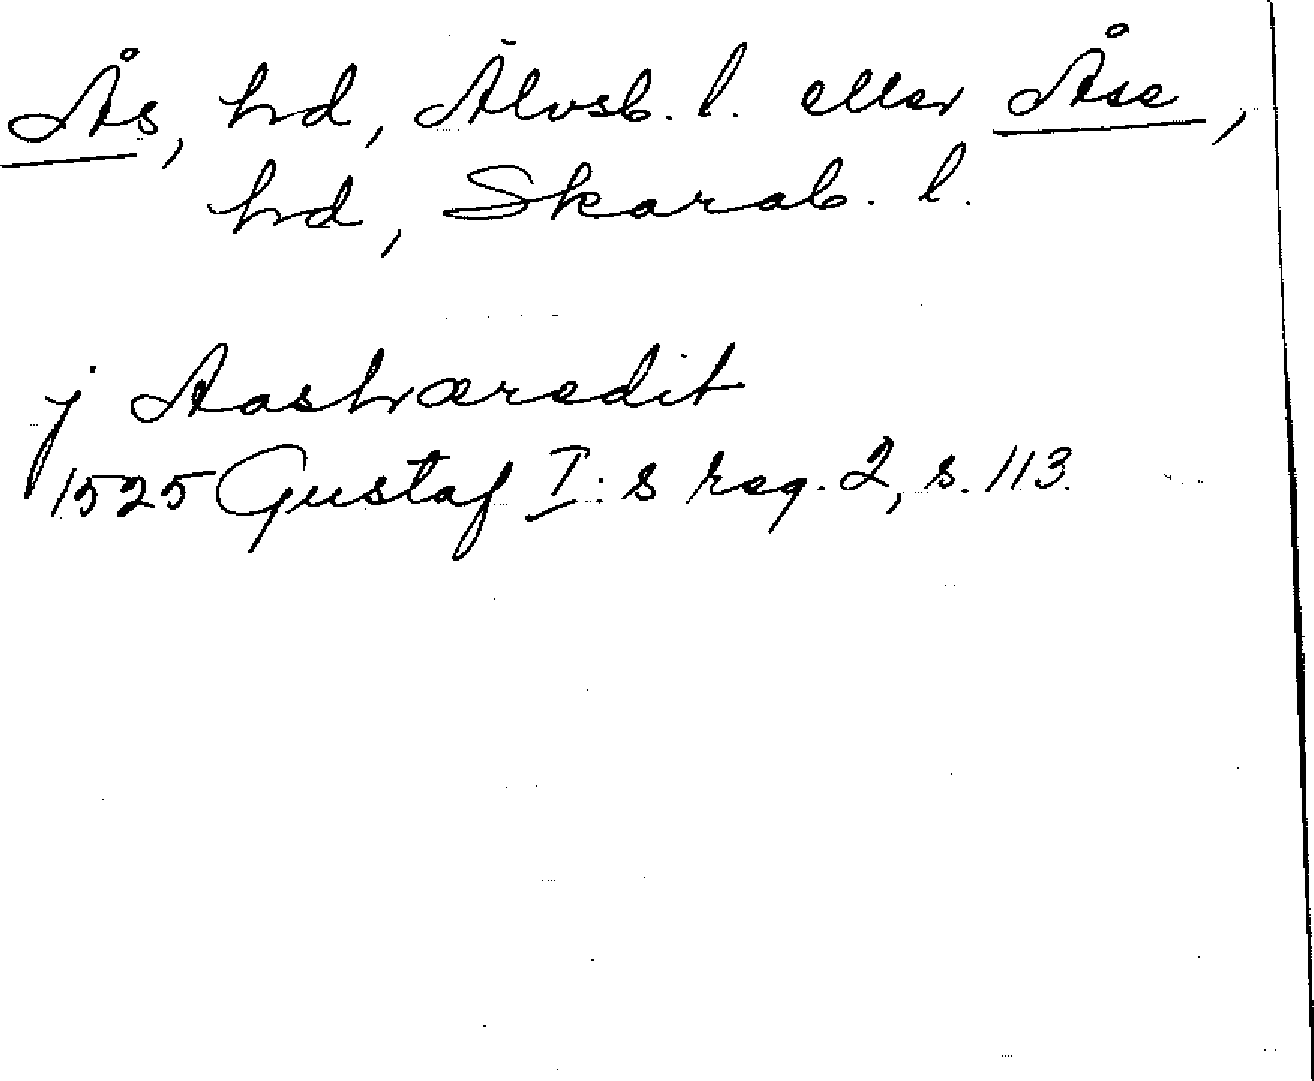 Ås, hd, Älvsb. l. eller Åse,
hd, Skarab. l.
j Aashæredit
1525 Gustaf I:s reg. 2, s. 113.